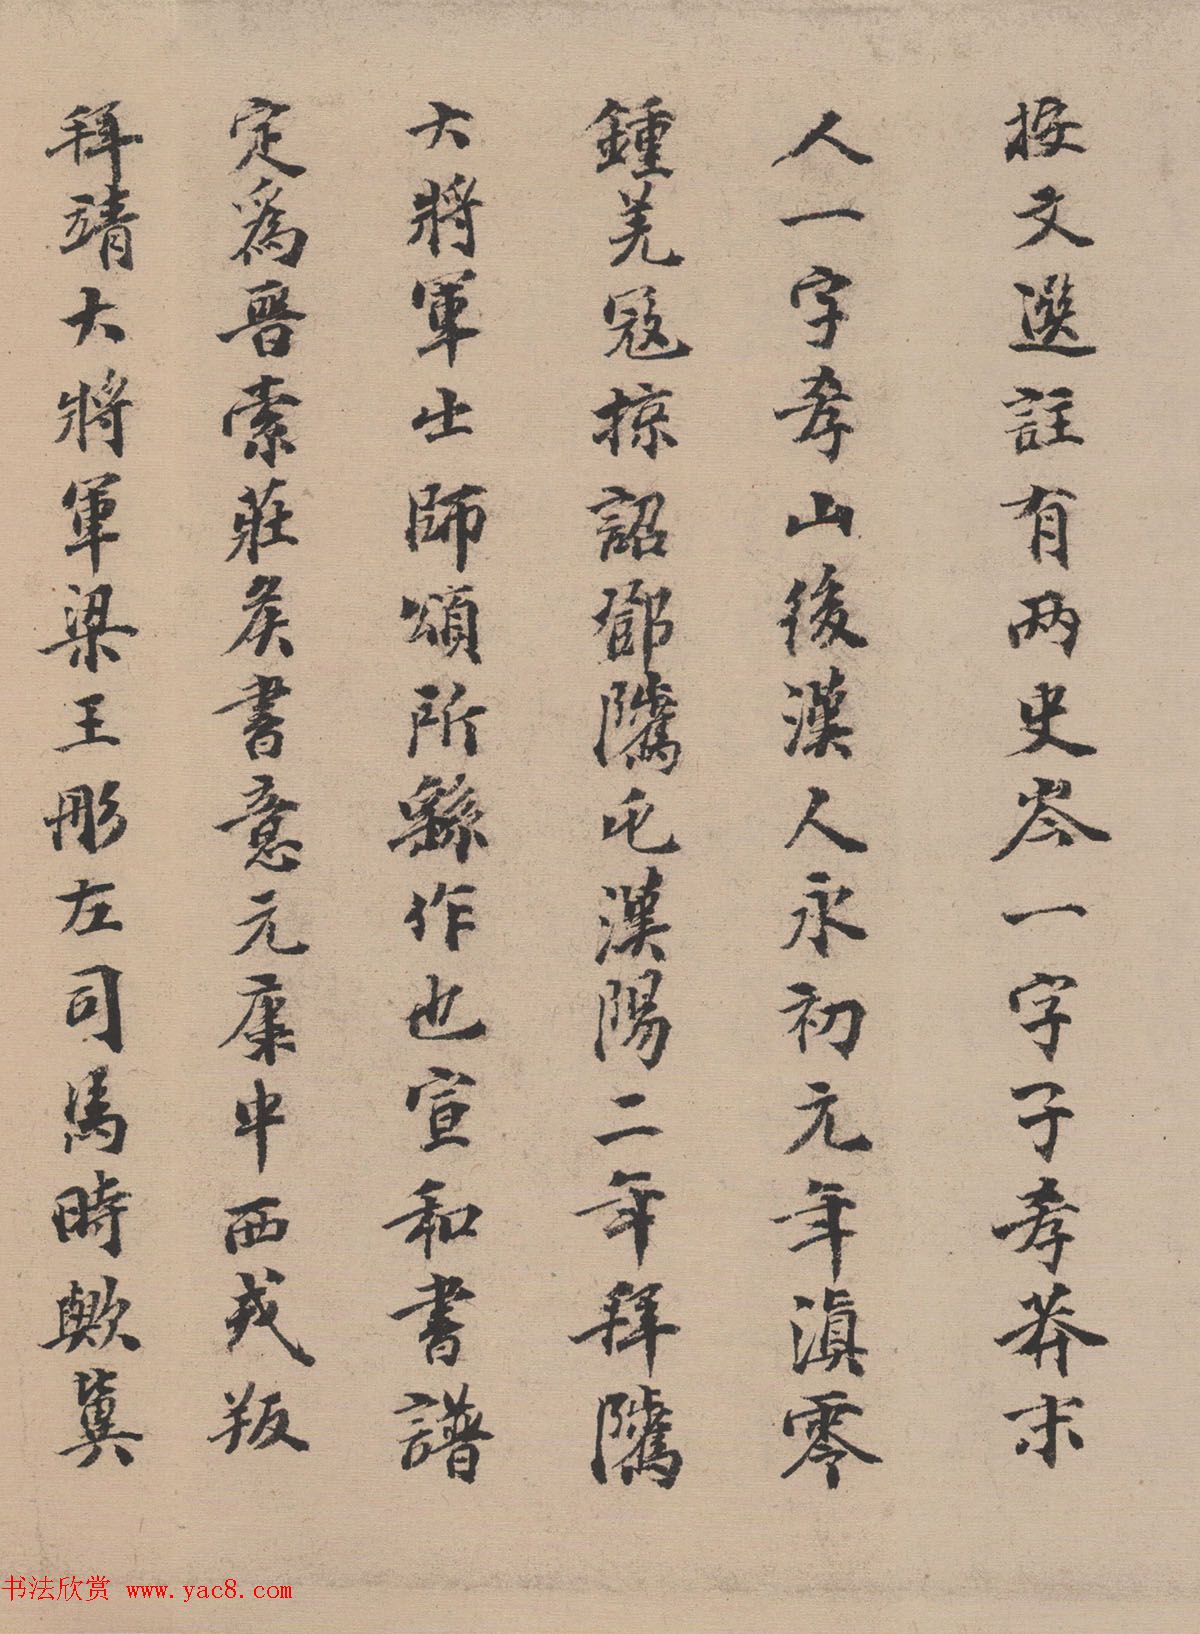 按文選註有两史岑一字子孝莽末
人一字孝山後漢人永初元年滇零
鍾羌寇掠詔鄧隲屯漢陽二年拜隲
大將軍出師頌所繇作也宣和書譜
定為晉索莊矦書意元康中西戎叛
拜靖大將軍梁王彤左司馬時歟冀
书法欣赏 www.yac8.com